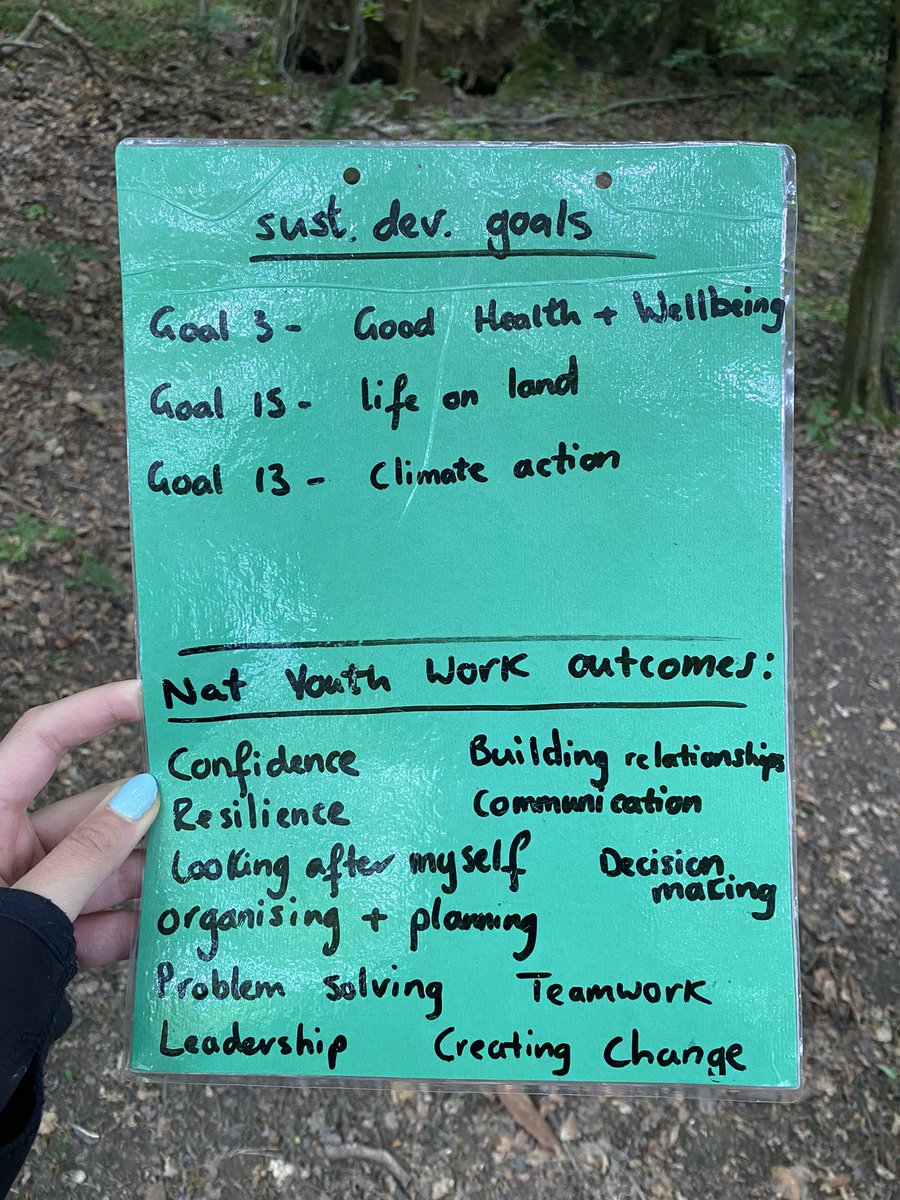 sust. dev. goals
Goal 3 - Good Health + Wellbeing
Goal 15 - life on land
Goal 13 - Climate action
Nat Youth Work outcomes:
Confidence Building relationships
Resilience Communication
Looking after myself Decision making
organising + planning
Problem solving Teamwork
Leadership Creating Change